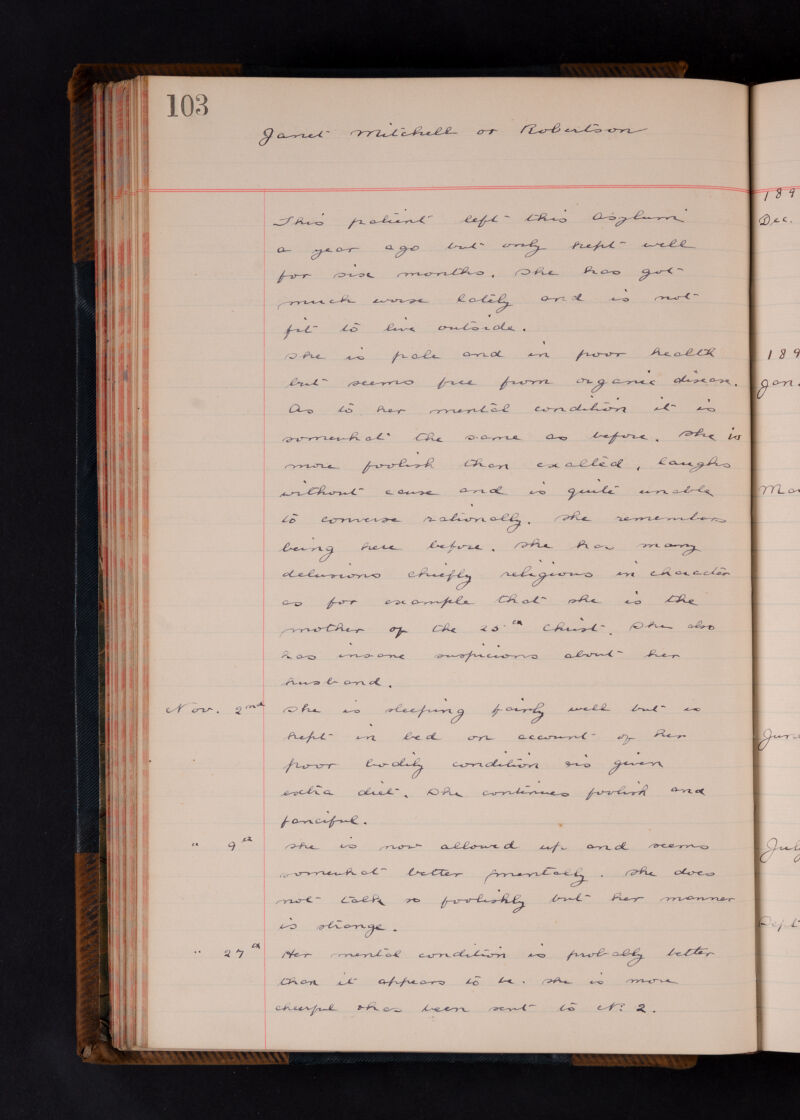 103
Janet Mitchell or Robertson
This patient left this Asylum
a year ago but only kept well
for six months. She has got
much worse lately and is not
fit to live outside.
She is pale and in poor health
but seems free from organic disease.
As to her mental condition it is
somewhat the same as before. She is
more foolish than exalted, laughs
without cause and is quite unable
to converse rationally. She remembers
being here before. She has many
delusions chiefly religious in character
as for example that she is the
mother of the 25th Christ. She also
has insane suspicions about her
husband.
Nov. 2nd She is sleeping fairly well but is
kept in bed on account of her
poor bodily condition & is given
extra diet. She continues foolish and
fanciful.
" 9th She is now allowed up and seems
somewhat better mentally. She does
not talk so foolishly but her manner
is strange.
" 27th Her mental condition is probably better
than it appears to be. She is more
cheerful & has been sent to No 2.
189
Dec.
189
Jan.